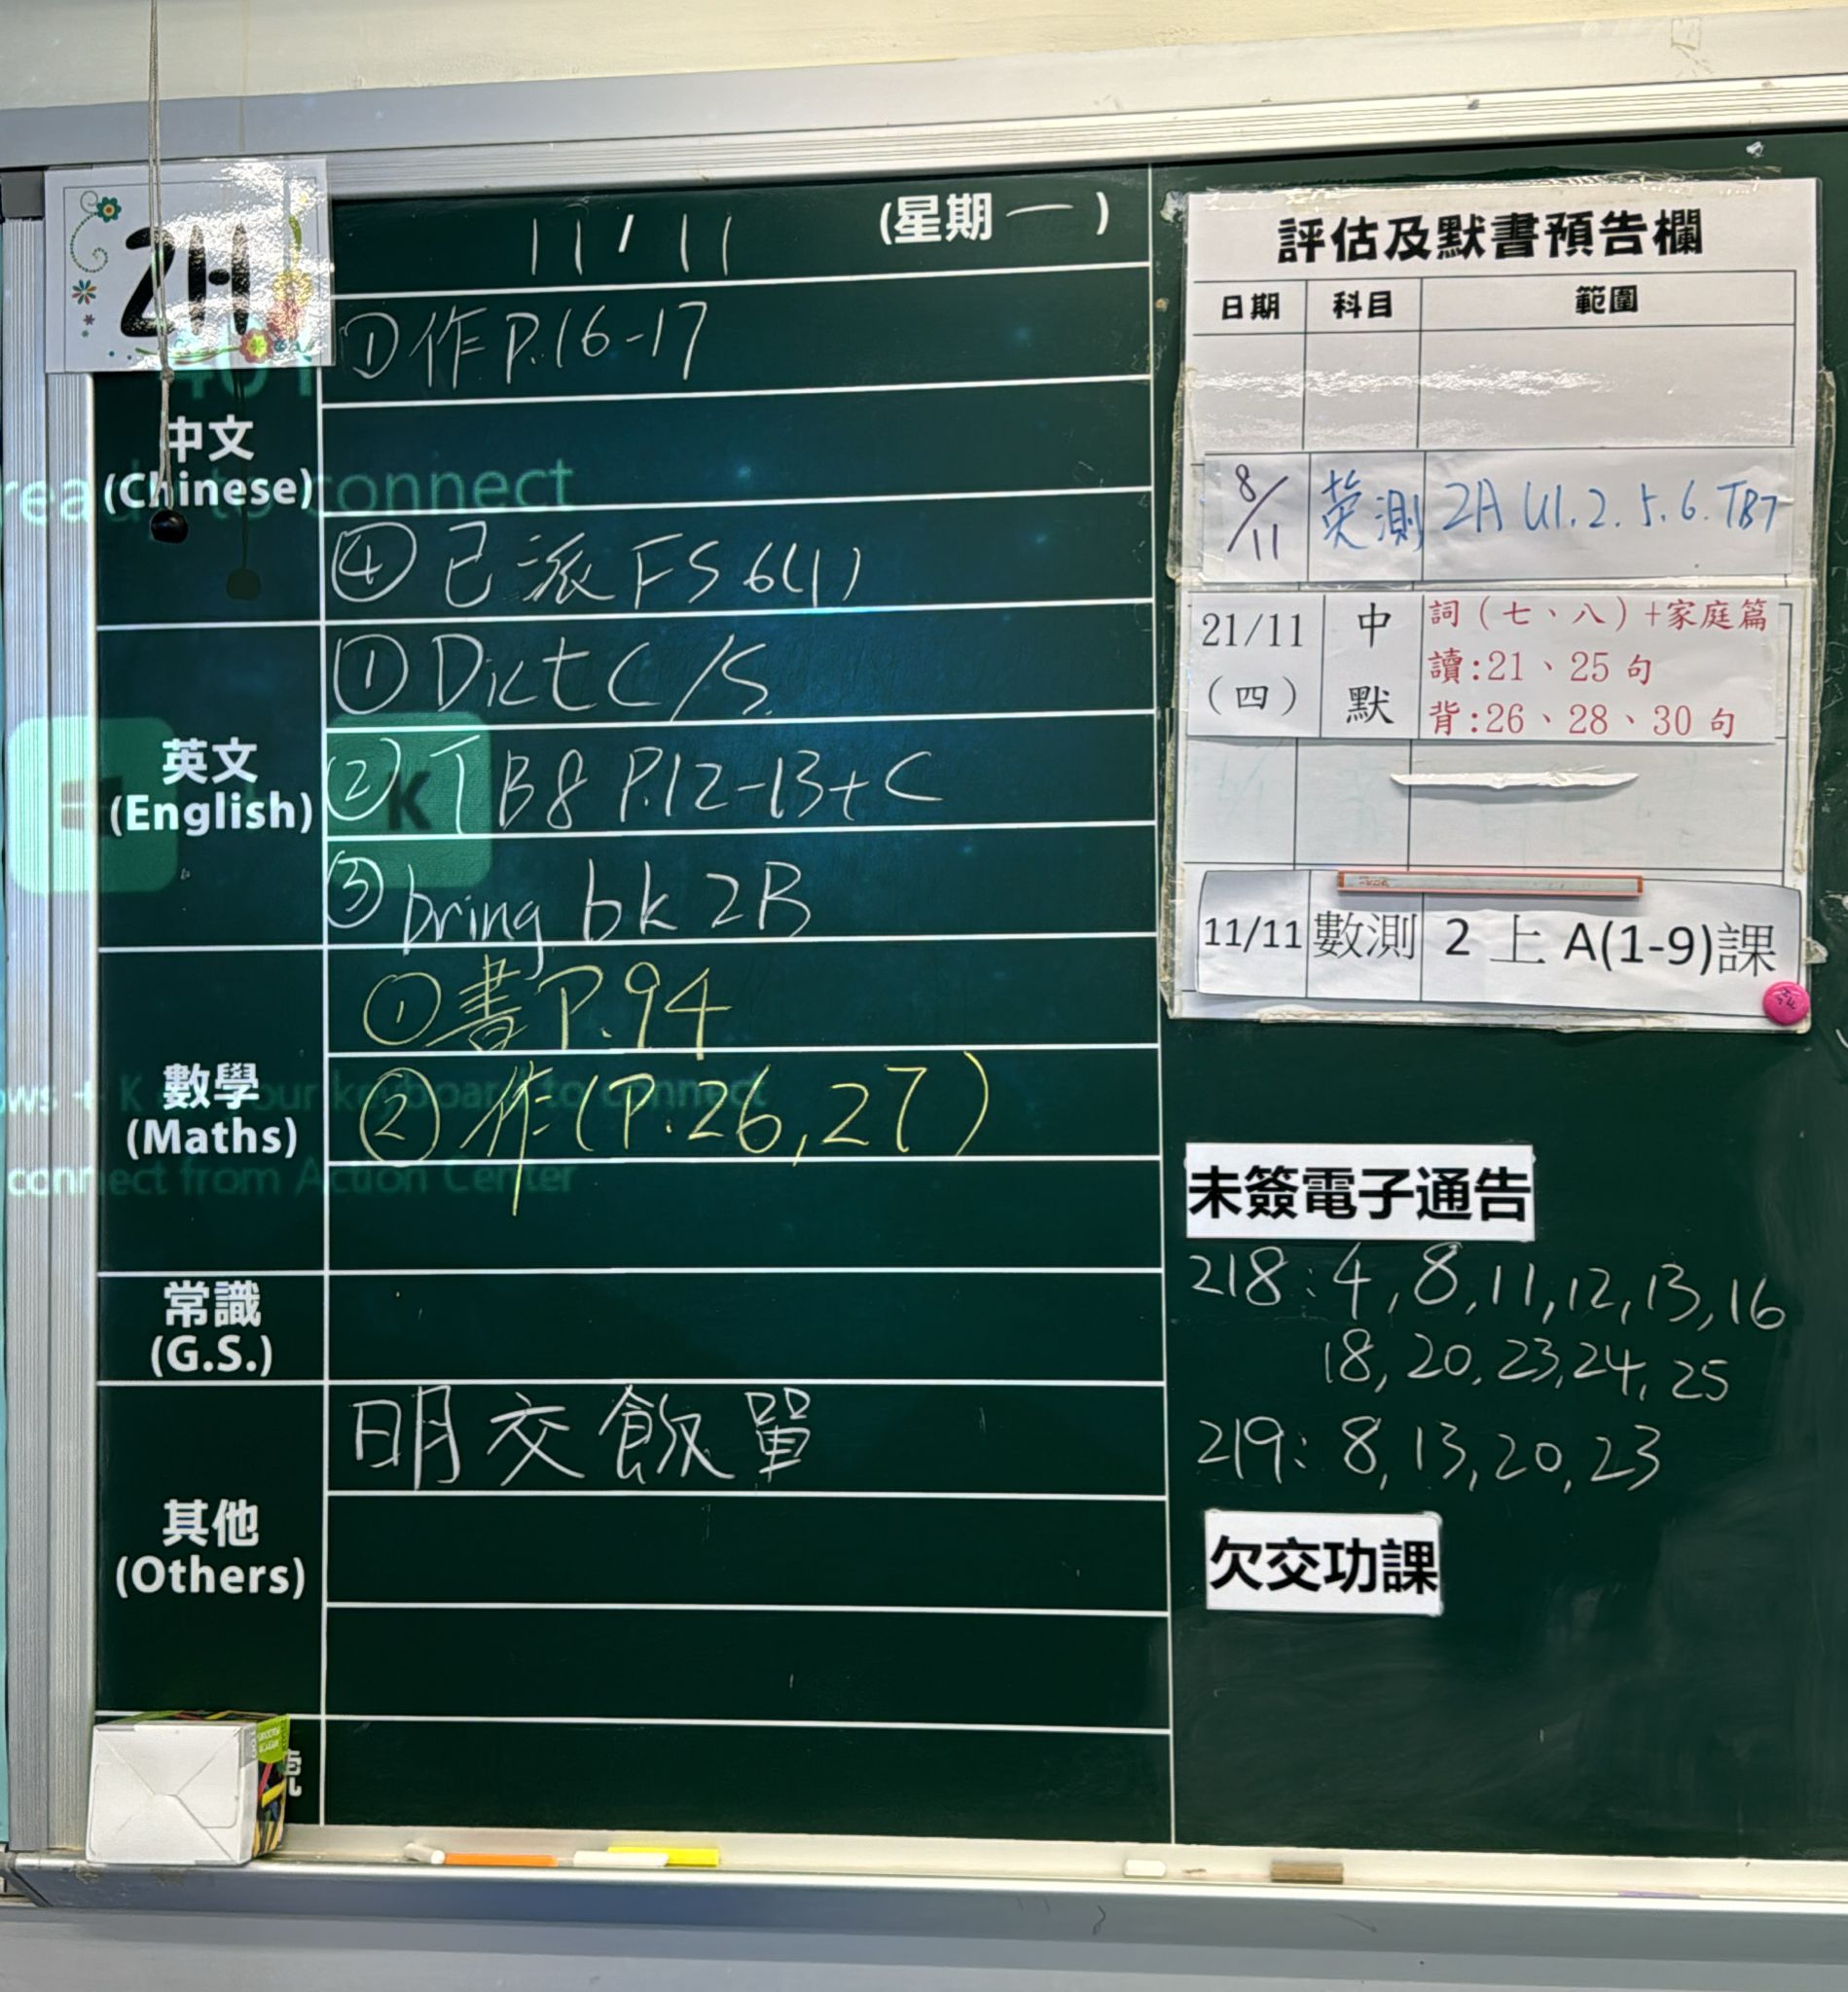 2H
11/11 (星期一)
中文
(Chinese)
①作P.16-17
④已派FS6(1)
英文
(English)
①Dict C/S
②TB8 P.12-13+C
③bring bk 2B
數學
(Maths)
①書P.94
②作(P.26,27)
常識
(G.S.)
其他
(Others)
明交飯單
ready to connect
K
ows + K your keyboard to connect
connect from Action Center
評估及默書預告欄
日期 科目 範圍
8/11 英測 2A U1.2.5.6.TB7
21/11 (四) 中默 詞（七、八）+家庭篇
讀:21、25句
背:26、28、30句
11/11 數測 2上A(1-9)課
未簽電子通告
218:4,8,11,12,13,16
18,20,23,24,25
219:8,13,20,23
欠交功課